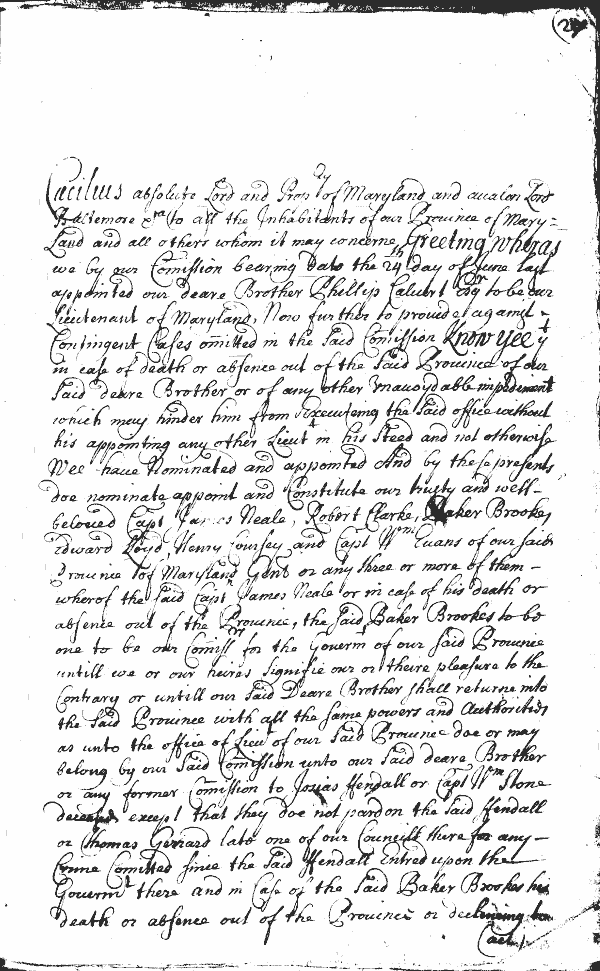 Cæcilius absolute Lord and Prop ry of Maryland and avalon Lord
Baltemore &ra to all the Inhabitants of our Province of Mary=
Land and all others whom it may concerne Greeting whereas
we by our Comission bearing Date the 24th day of June last
appointed our deare Brother Phillip Calvert Esqr to be our
Lieutenant of Maryland, Now further to provide against -
Contingent Cases omitted in the Said Comission Know yee yt
in case of death or absence out of the Said Province of our
Said deare Brother or of any other unavoydable impediment
which may hinder him from Executeing the Said office without
his appointing any other Lieut in his Steed and not otherwise
Wee have Nominated and appointed And by these presents
doe nominate appoint and Constitute our trusty and well-
beloved Capt James Neale, Robert Clarke, Baker Brookes
Edward Lloyd, Henry Coursey and Capt Wm Evans of our said
Province of Maryland Gent or any three or more of them -
wherof the said Capt James Neale or in case of his death or
absence out of the Province, the said Baker Brookes to be
one to be our Comissrs for the Governmt of our said Province
untill we or our heires Signifie our or theire pleasure to the
Contrary or untill our Said Deare Brother shall returne into
the Said Province with all the same powers and Authorities
as unto the office of Lieut of our Said Province doe or may
belong by our Said Comission unto our Said deare Brother
or any former Comission to Josias ffendall or Capt Wm Stone
deceased except that they doe not pardon the Said ffendall
or Thomas Gerrard late one of our Councill there for any -
Crime Comitted since the Said ffendall Entred upon the
Governmt there and in Case of the Said Baker Brookes his
death or absence out of the Province or declineing to
(act)